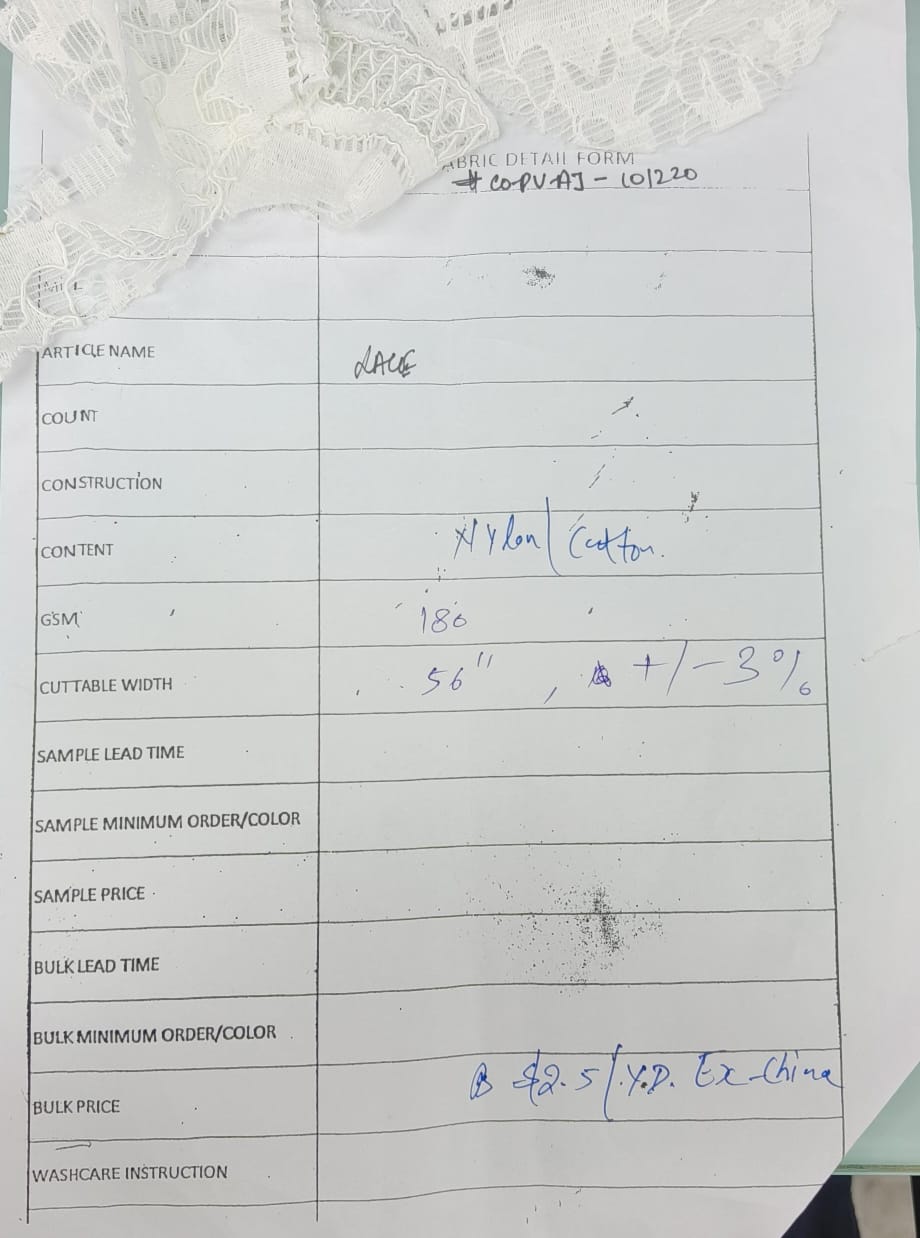 FABRIC DETAIL FORM
# COPVAJ - 101220
MILL
ARTICLE NAME LACE
COUNT
CONSTRUCTION
CONTENT Nylon / Cotton.
GSM 180
CUTTABLE WIDTH 56" , +/- 3%
SAMPLE LEAD TIME
SAMPLE MINIMUM ORDER/COLOR
SAMPLE PRICE
BULK LEAD TIME
BULK MINIMUM ORDER/COLOR
BULK PRICE $2.5/.Y.D. Ex-China
WASHCARE INSTRUCTION